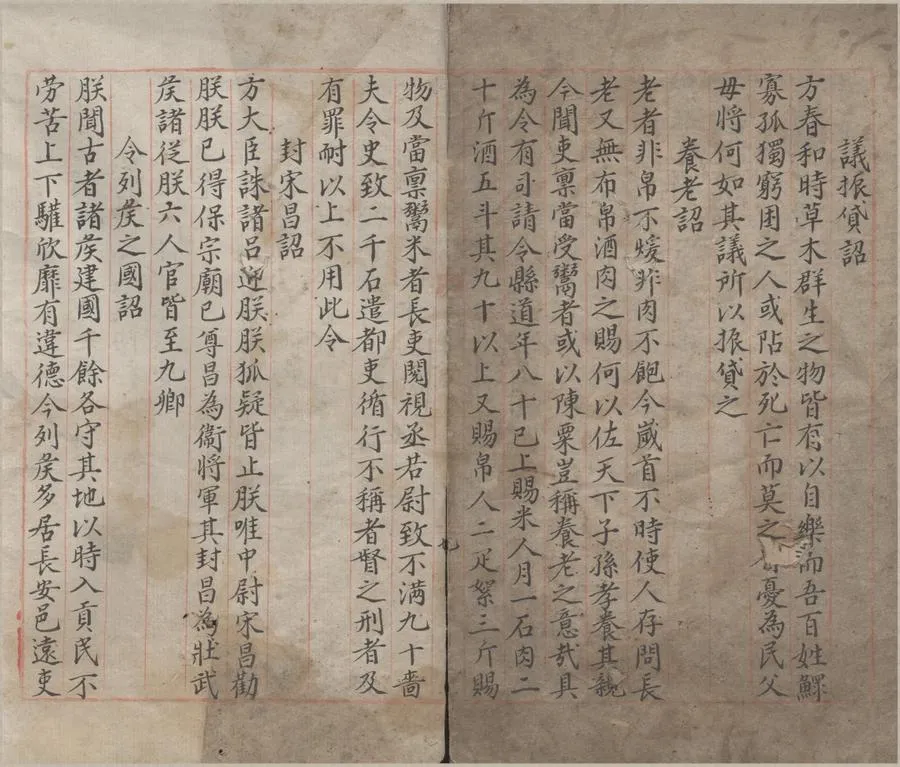 議振貸詔
方春和時草木群生之物皆有以自樂而吾百姓鰥
寡孤獨窮困之人或阽於死亡而莫之憂為民父
毋將何如其議所以振貸之
養老詔
老者非帛不煖非肉不飽今歲首不時使人存問長
老又無布帛酒肉之賜何以佐天下子孫孝養其親
今聞吏稟當受鬻者或以陳粟豈稱養老之意哉具
為令有司請令縣道年八十已上賜米人月一石肉二
十斤酒五斗其九十以上又賜帛人二疋絮三斤賜
物及當稟鬻米者長吏閱視丞若尉致不滿九十嗇
夫令史致二千石遣都吏循行不稱者督之刑者及
有罪耐以上不用此令
封宋昌詔
方大臣誅諸呂迎朕朕狐疑皆止朕唯中尉宋昌勸
朕朕已得保宗廟已尊昌為衞將軍其封昌為壯武
矦諸從朕六人官皆至九卿
令列矦之國詔
朕聞古者諸矦建國千餘各守其地以時入貢民不
勞苦上下驩欣靡有違德今列矦多居長安邑遠吏